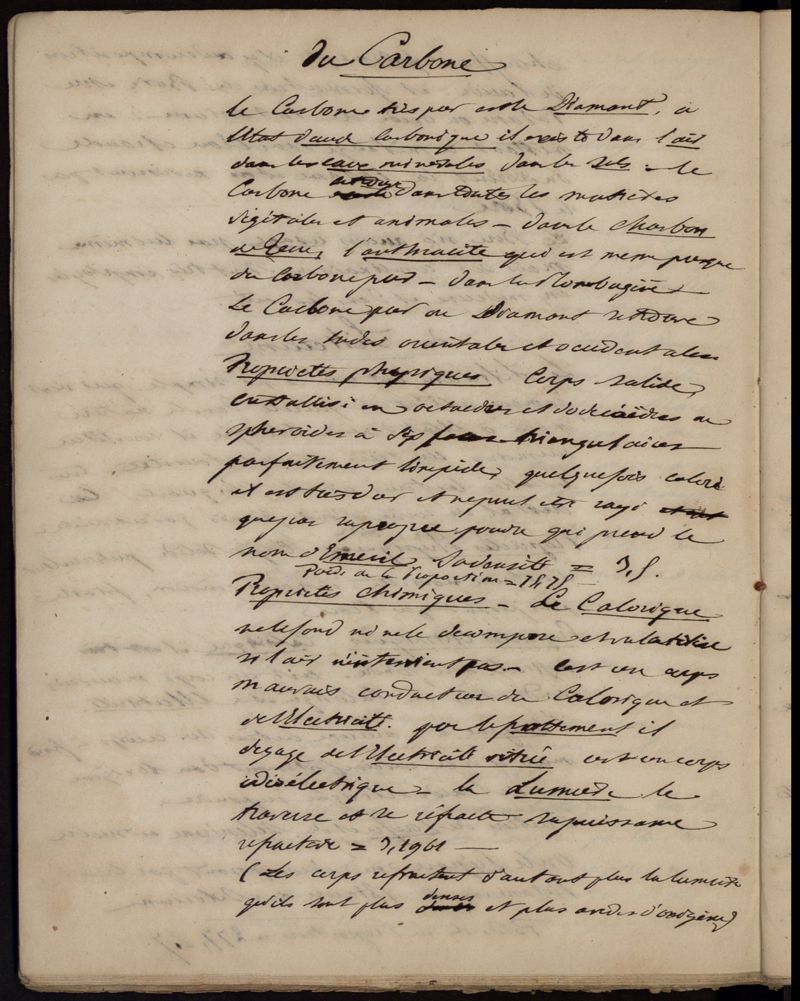 du Carbone
le Carbone très pur est le Diamant, à
l'état d'acide carbonique il existe dans l'air
dans les eaux minérales dans les sels = le
Carbone existe dans toutes les matières
végétales et animales – dans le charbon
de Terre, l'anthracite qui est meme presque
du Carbone pur – dans la Plombagine –
Le Carbone pur ou Diamant se trouve
dans les Indes orientales et occidentales
Propriétés physiques Corps solide,
cristallisé en octaedres et dodécaèdres ou
spheroides à faces triangulaires
parfaitement limpide, quelquefois coloré
il est tres dur et ne peut etre rayé
que par sa propre poudre qui prend le
nom d'Emeril, Sa densité = 3,5.
Poids de la Proportion = 75,75
Propriétés chimiques – Le Calorique
ne le fond ni ne le decompose et ne le volatilise
si l'air n'intervient pas – c'est un corps
mauvais conducteur du Calorique et
de l'Electricité. par le frottement il
degage de l'Electricité vitrée c'est un corps
idioélectrique – la Lumiere le
traverse et se réfracte sa puissance
refractive = 3,1961 —
(Les corps refractent d'autant plus la lumiere
qu'ils sont plus denses et plus avides d'oxigène)